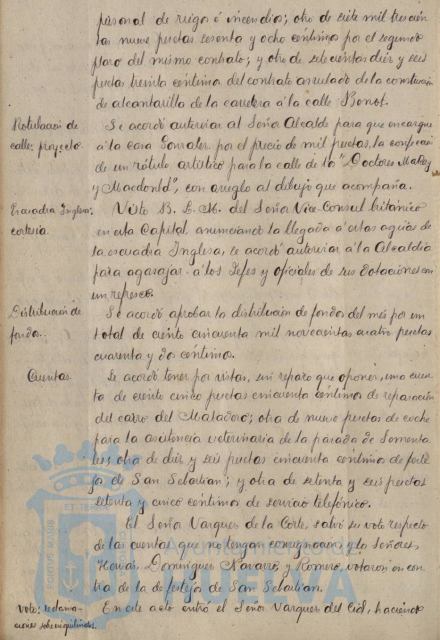 personal de riego é incendios; otro de siete mil trescien
tas nueve pesetas sesenta y ocho centimos por el segundo
plazo del mismo contrato; y otro de seiscientas diez y seis
pesetas treinta centimos del contrato anulado de la construccion
de alcantarilla de la carretera á la calle Bonot.
Rotulacion de
calle: proyecto.
Se acordó autorizar al Señor Alcalde para que encargue
á la casa Gonzalez, por el precio de mil pesetas, la confeccion
de un rótulo artístico para la calle de los "Doctores Mackay
y Macdonald", con arreglo al dibujo que acompaña.
Escuadra Inglesa:
cortesia.
Visto B. L. M. del Señor Vice-Consul británico
en esta Capital anunciando la llegada á estas aguas de
la escuadra Inglesa, se acordó autorizar á la Alcaldia
para agasajar á los Jefes y oficiales de sus dotaciones con
un refresco.
Distribucion de
fondos.
Se acordó aprobar la distribucion de fondos del mes por un
total de ciento cincuenta mil novecientas cuatro pesetas
cuarenta y dos centimos.
Cuentas
Se acordó tener por vistas, sin reparo que oponer, una cuen
ta de ciento cinco pesetas cincuenta centimos de reparación
del carro del Matadero; otra de nueve pesetas de coche
para la asistencia veterinaria de la parada de Sementa
les; otra de diez y seis pesetas cincuenta centimos de feste
jo de San Sebastian; y otra de setenta y seis pesetas
setenta y cinco centimos de servicio telefónico.
El Señor Vazquez de la Corte, salvó su voto respecto
de las cuentas que no tengan consignacion y los Señores
Dominguez Navarro y Romero, votaron en con
tra de la de festejo de San Sebastian.
Voto: reclama-
ciones sobre inquilinos.
En este acto entró el Señor Vazquez del Cid, haciendo
Ayuntamiento de
HUELVA